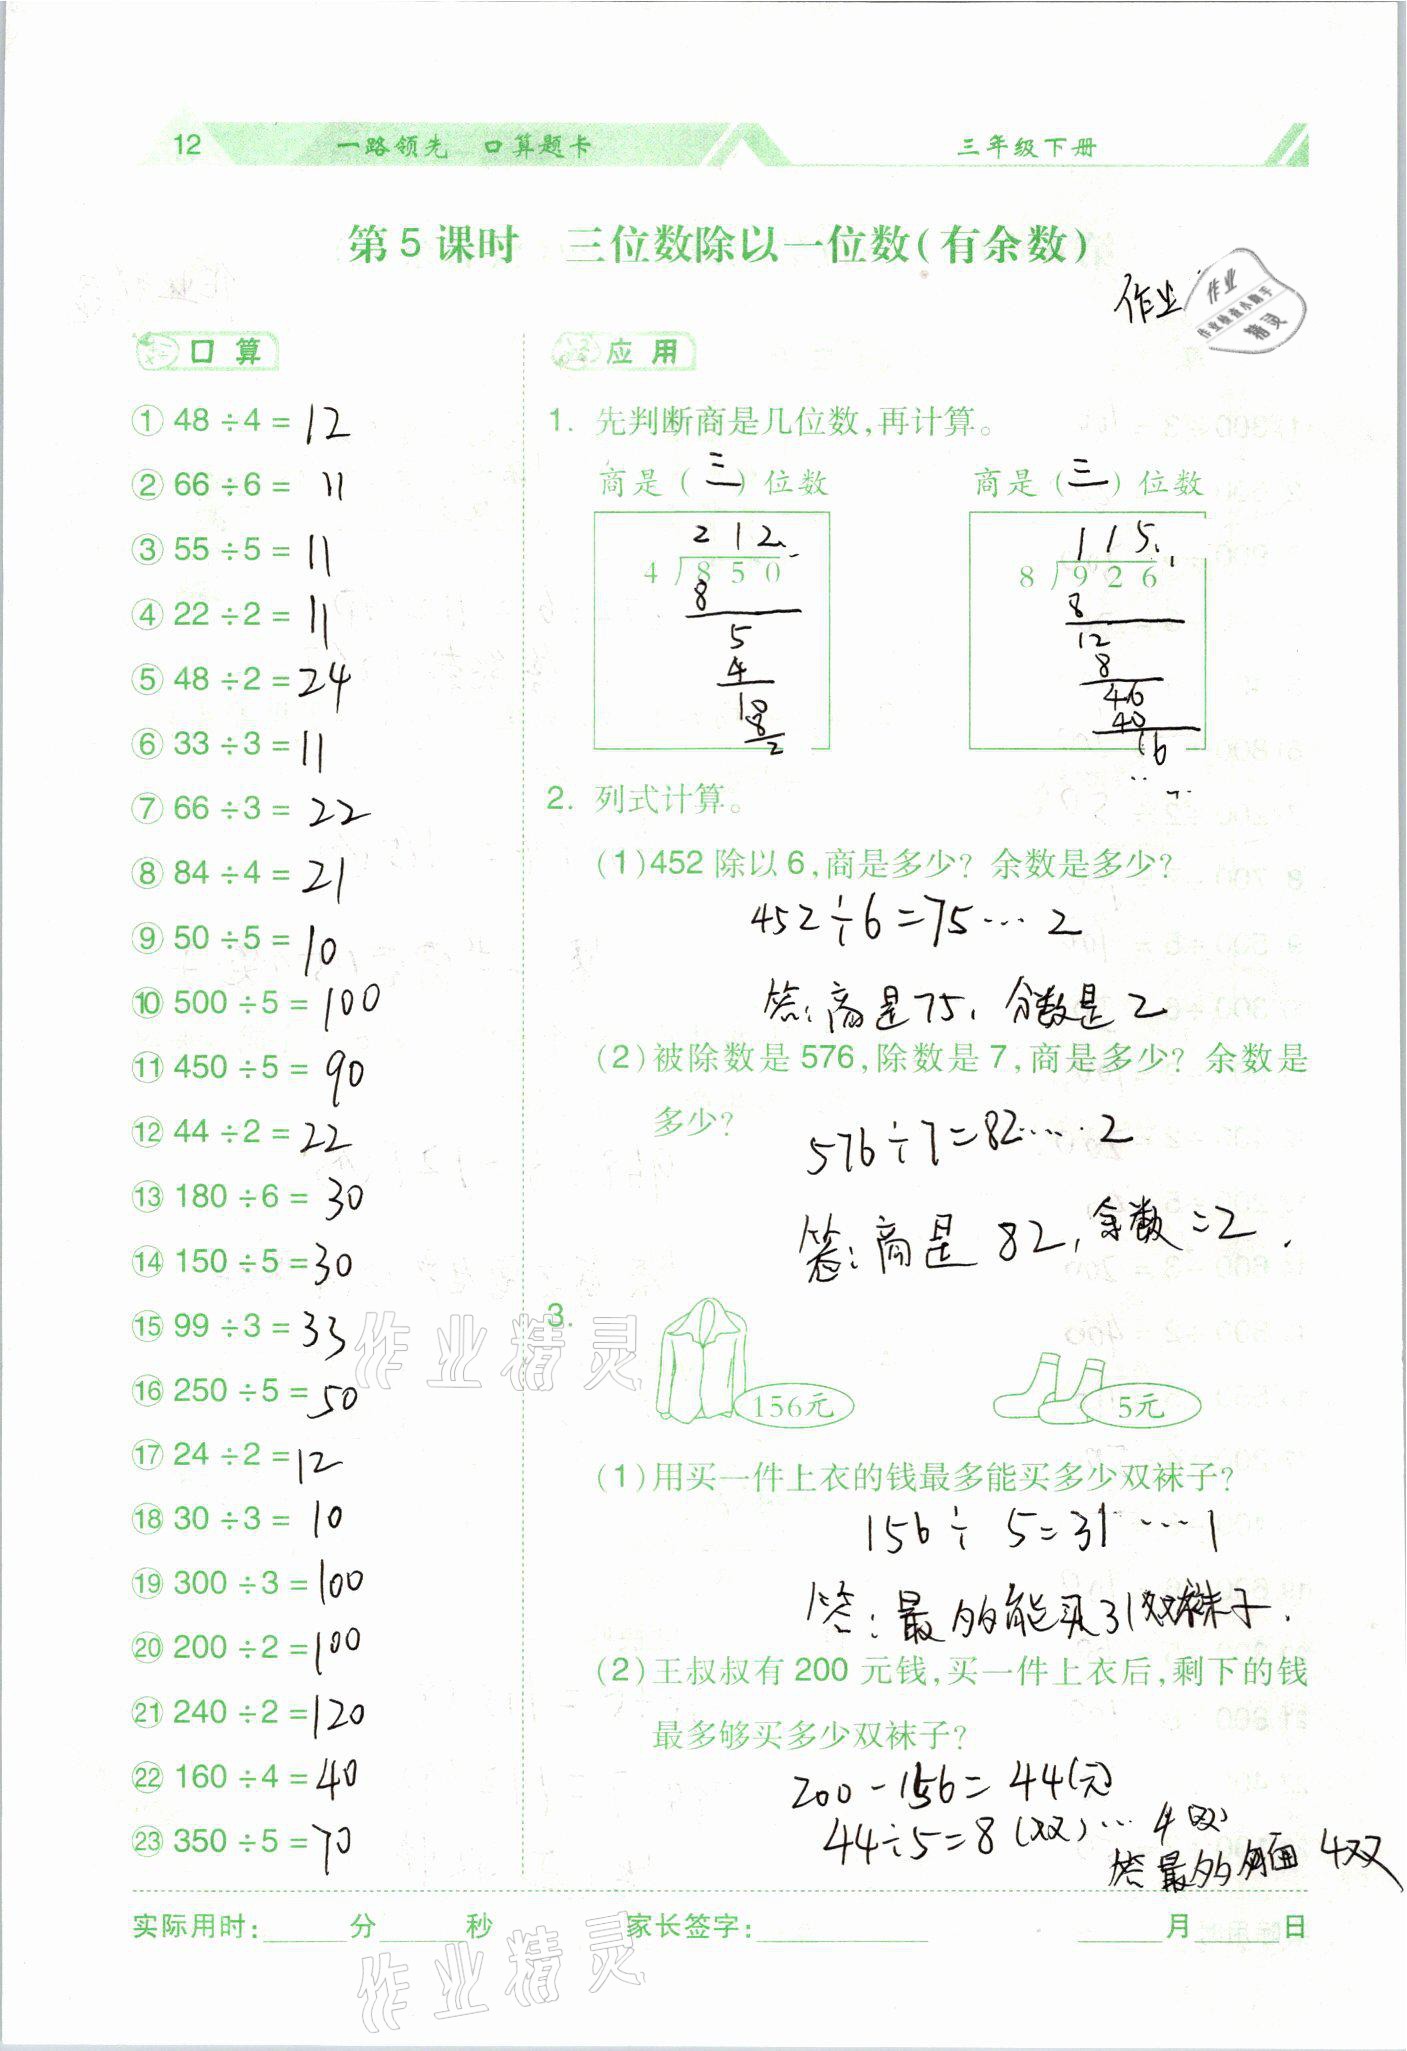 12 一路领先 口算题卡 三年级下册
第5课时 三位数除以一位数(有余数)
作业
作业
作业检查小助手
精灵
口算
① 48÷4=12
② 66÷6=11
③ 55÷5=11
④ 22÷2=11
⑤ 48÷2=24
⑥ 33÷3=11
⑦ 66÷3=22
⑧ 84÷4=21
⑨ 50÷5=10
⑩ 500÷5=100
⑪ 450÷5=90
⑫ 44÷2=22
⑬ 180÷6=30
⑭ 150÷5=30
⑮ 99÷3=33
⑯ 250÷5=50
⑰ 24÷2=12
⑱ 30÷3=10
⑲ 300÷3=100
⑳ 200÷2=100
㉑ 240÷2=120
㉒ 160÷4=40
㉓ 350÷5=70
应用
1. 先判断商是几位数,再计算。
商是(三)位数 商是(三)位数
212
4 850
8
5
4
10
8
2
115
8 926
8
12
8
46
40
6
2. 列式计算。
(1)452除以6,商是多少?余数是多少?
452÷6=75…2
答:商是75,分数是2
(2)被除数是576,除数是7,商是多少?余数是
多少?
576÷7=82…2
答:商是82,余数=2.
3.
156元 5元
(1)用买一件上衣的钱最多能买多少双袜子?
156÷5=31…1
答:最多能买31双袜子.
(2)王叔叔有200元钱,买一件上衣后,剩下的钱
最多够买多少双袜子?
200-156=44(元)
44÷5=8(双)…4(双)
答最多 4双
实际用时:____分____秒 家长签字:________ ____月____日
作业精灵
作业精灵